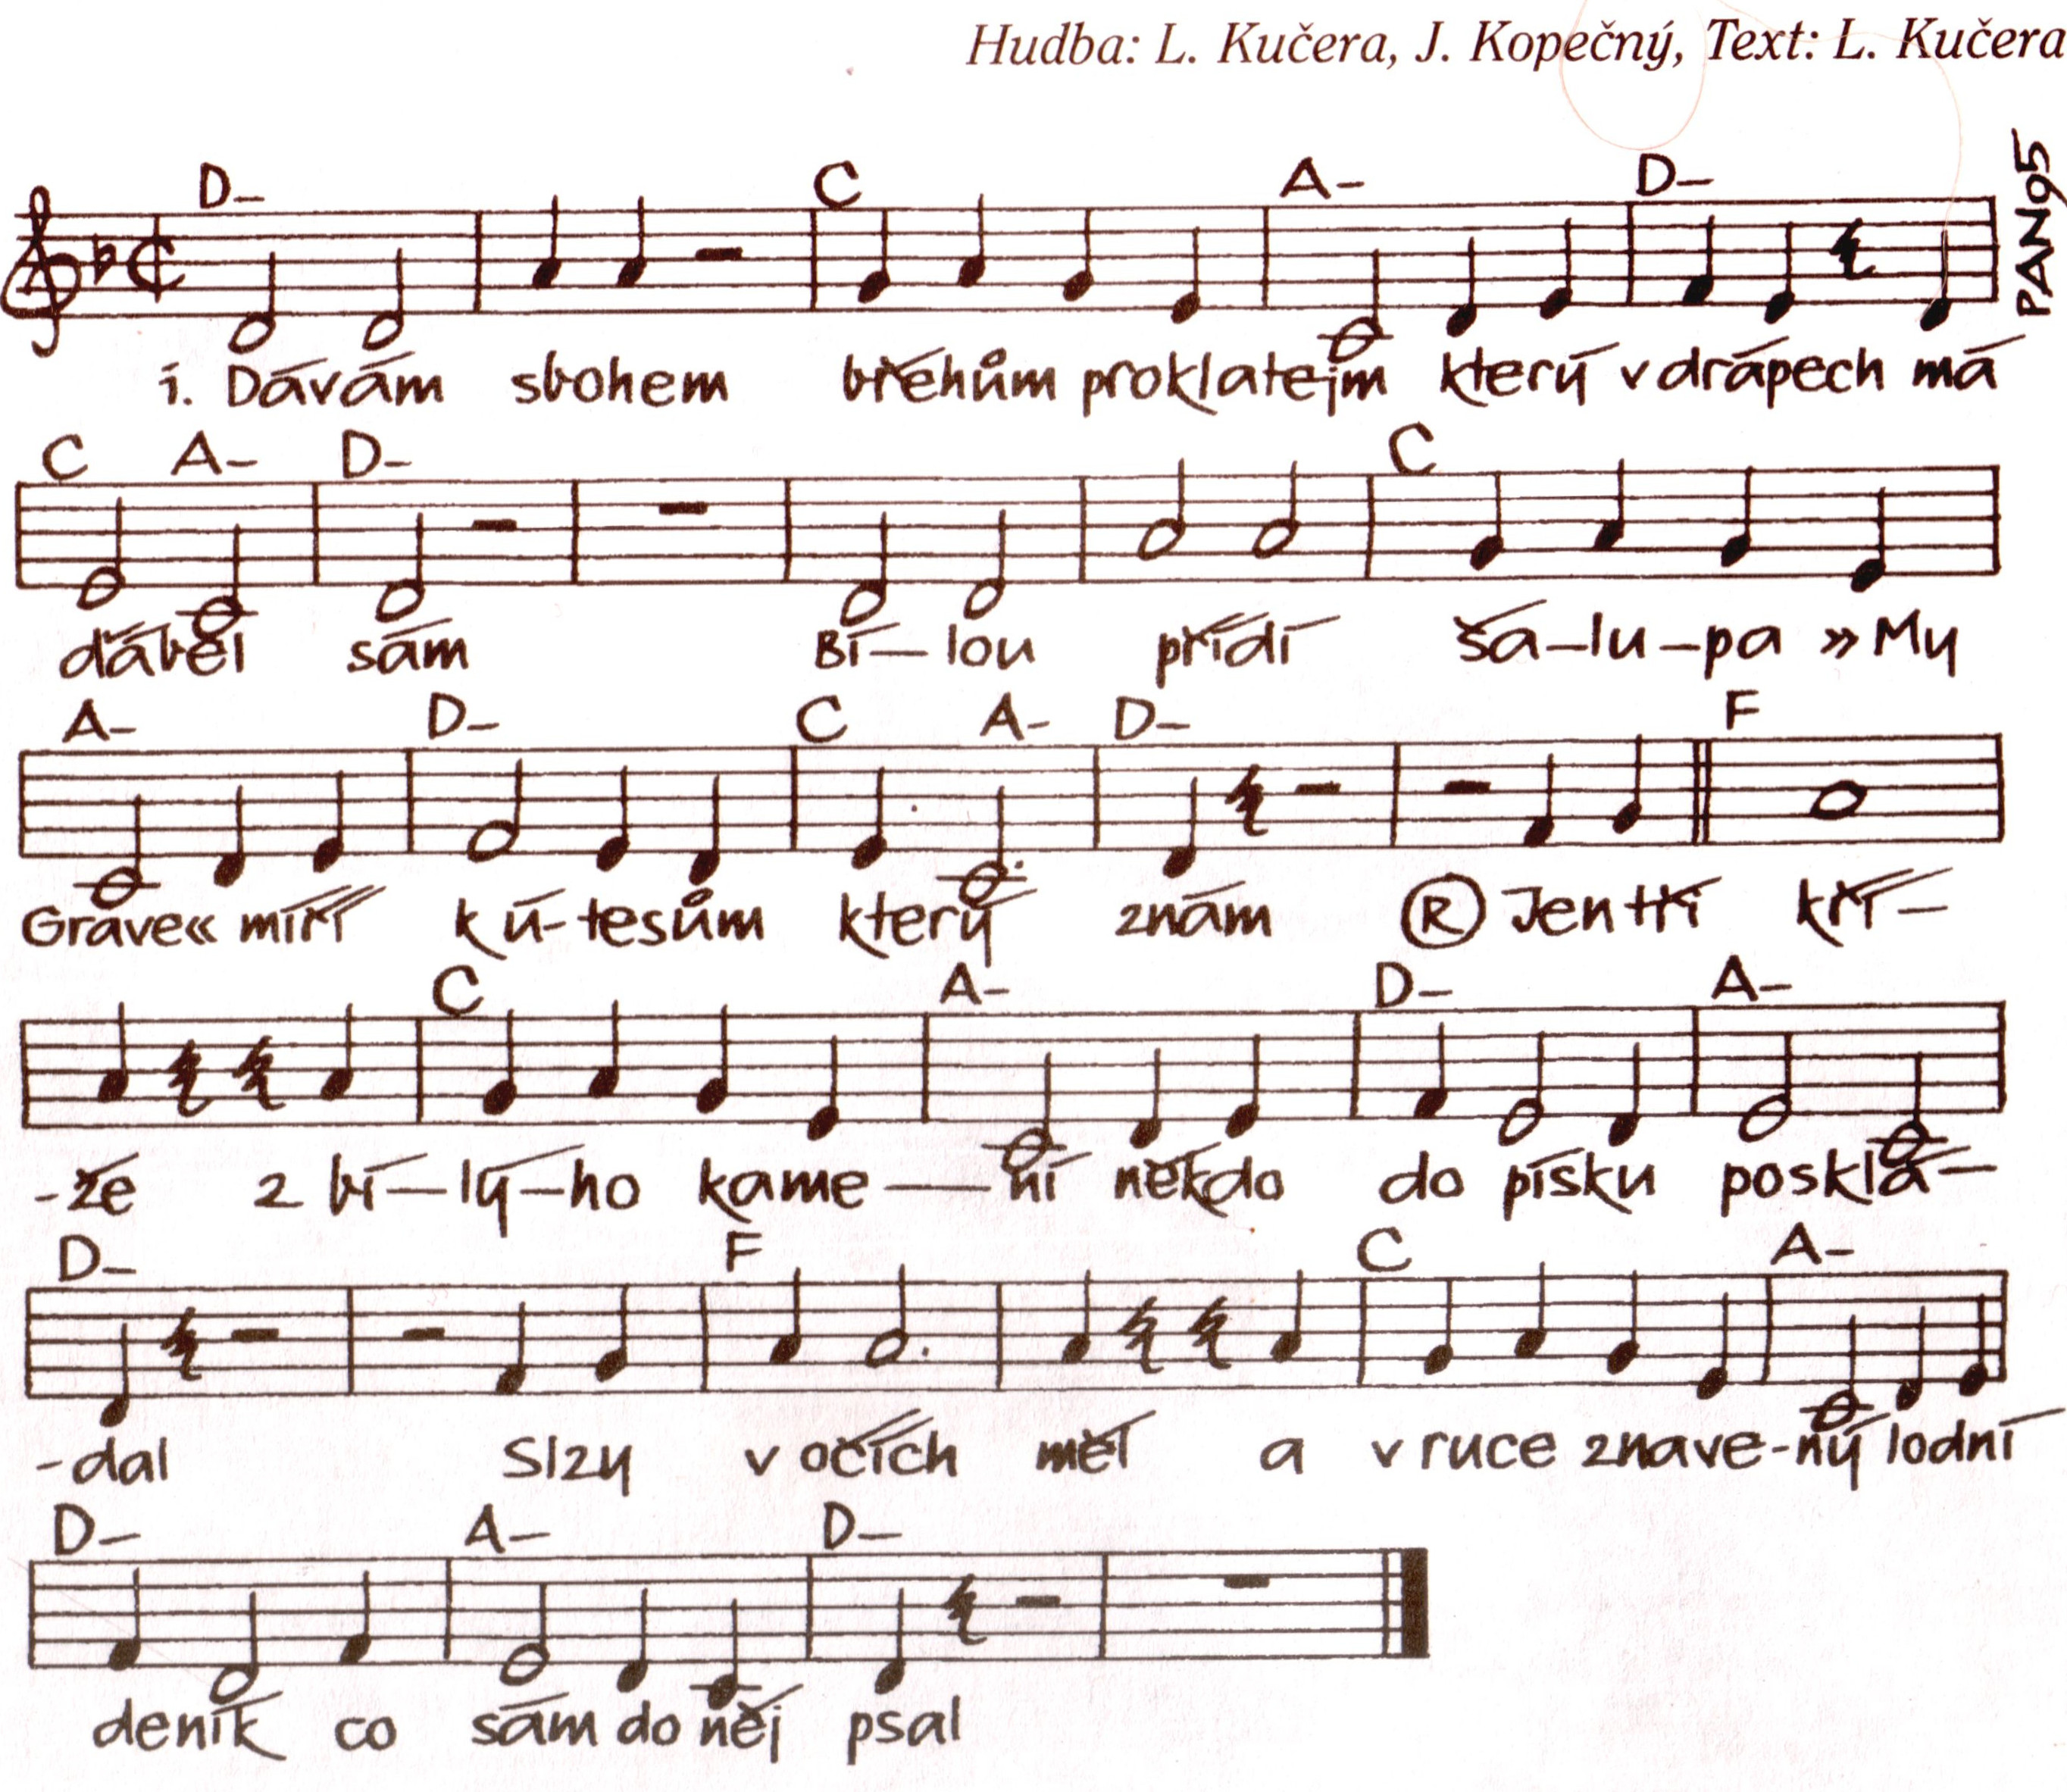 Hudba: L. Kučera, J. Kopečný, Text: L. Kučera
PAN95
D– C A– D–
1. Dávám sbohem břehům proklatejm který v drápech má
C A– D– C
ďábel sám Bí–lou přídí ša–lu–pa »My
A– D– C A– D– F
Grave« míří k ú-tesům který znám Ⓡ Jen tři kří–
C A– D– A–
-že z bí–lý–ho kame–ní někdo do písku posklá–
D– F C A–
-dal Slzy v očích měl a v ruce znave-ný lodní
D– A– D–
deník co sám do něj psal